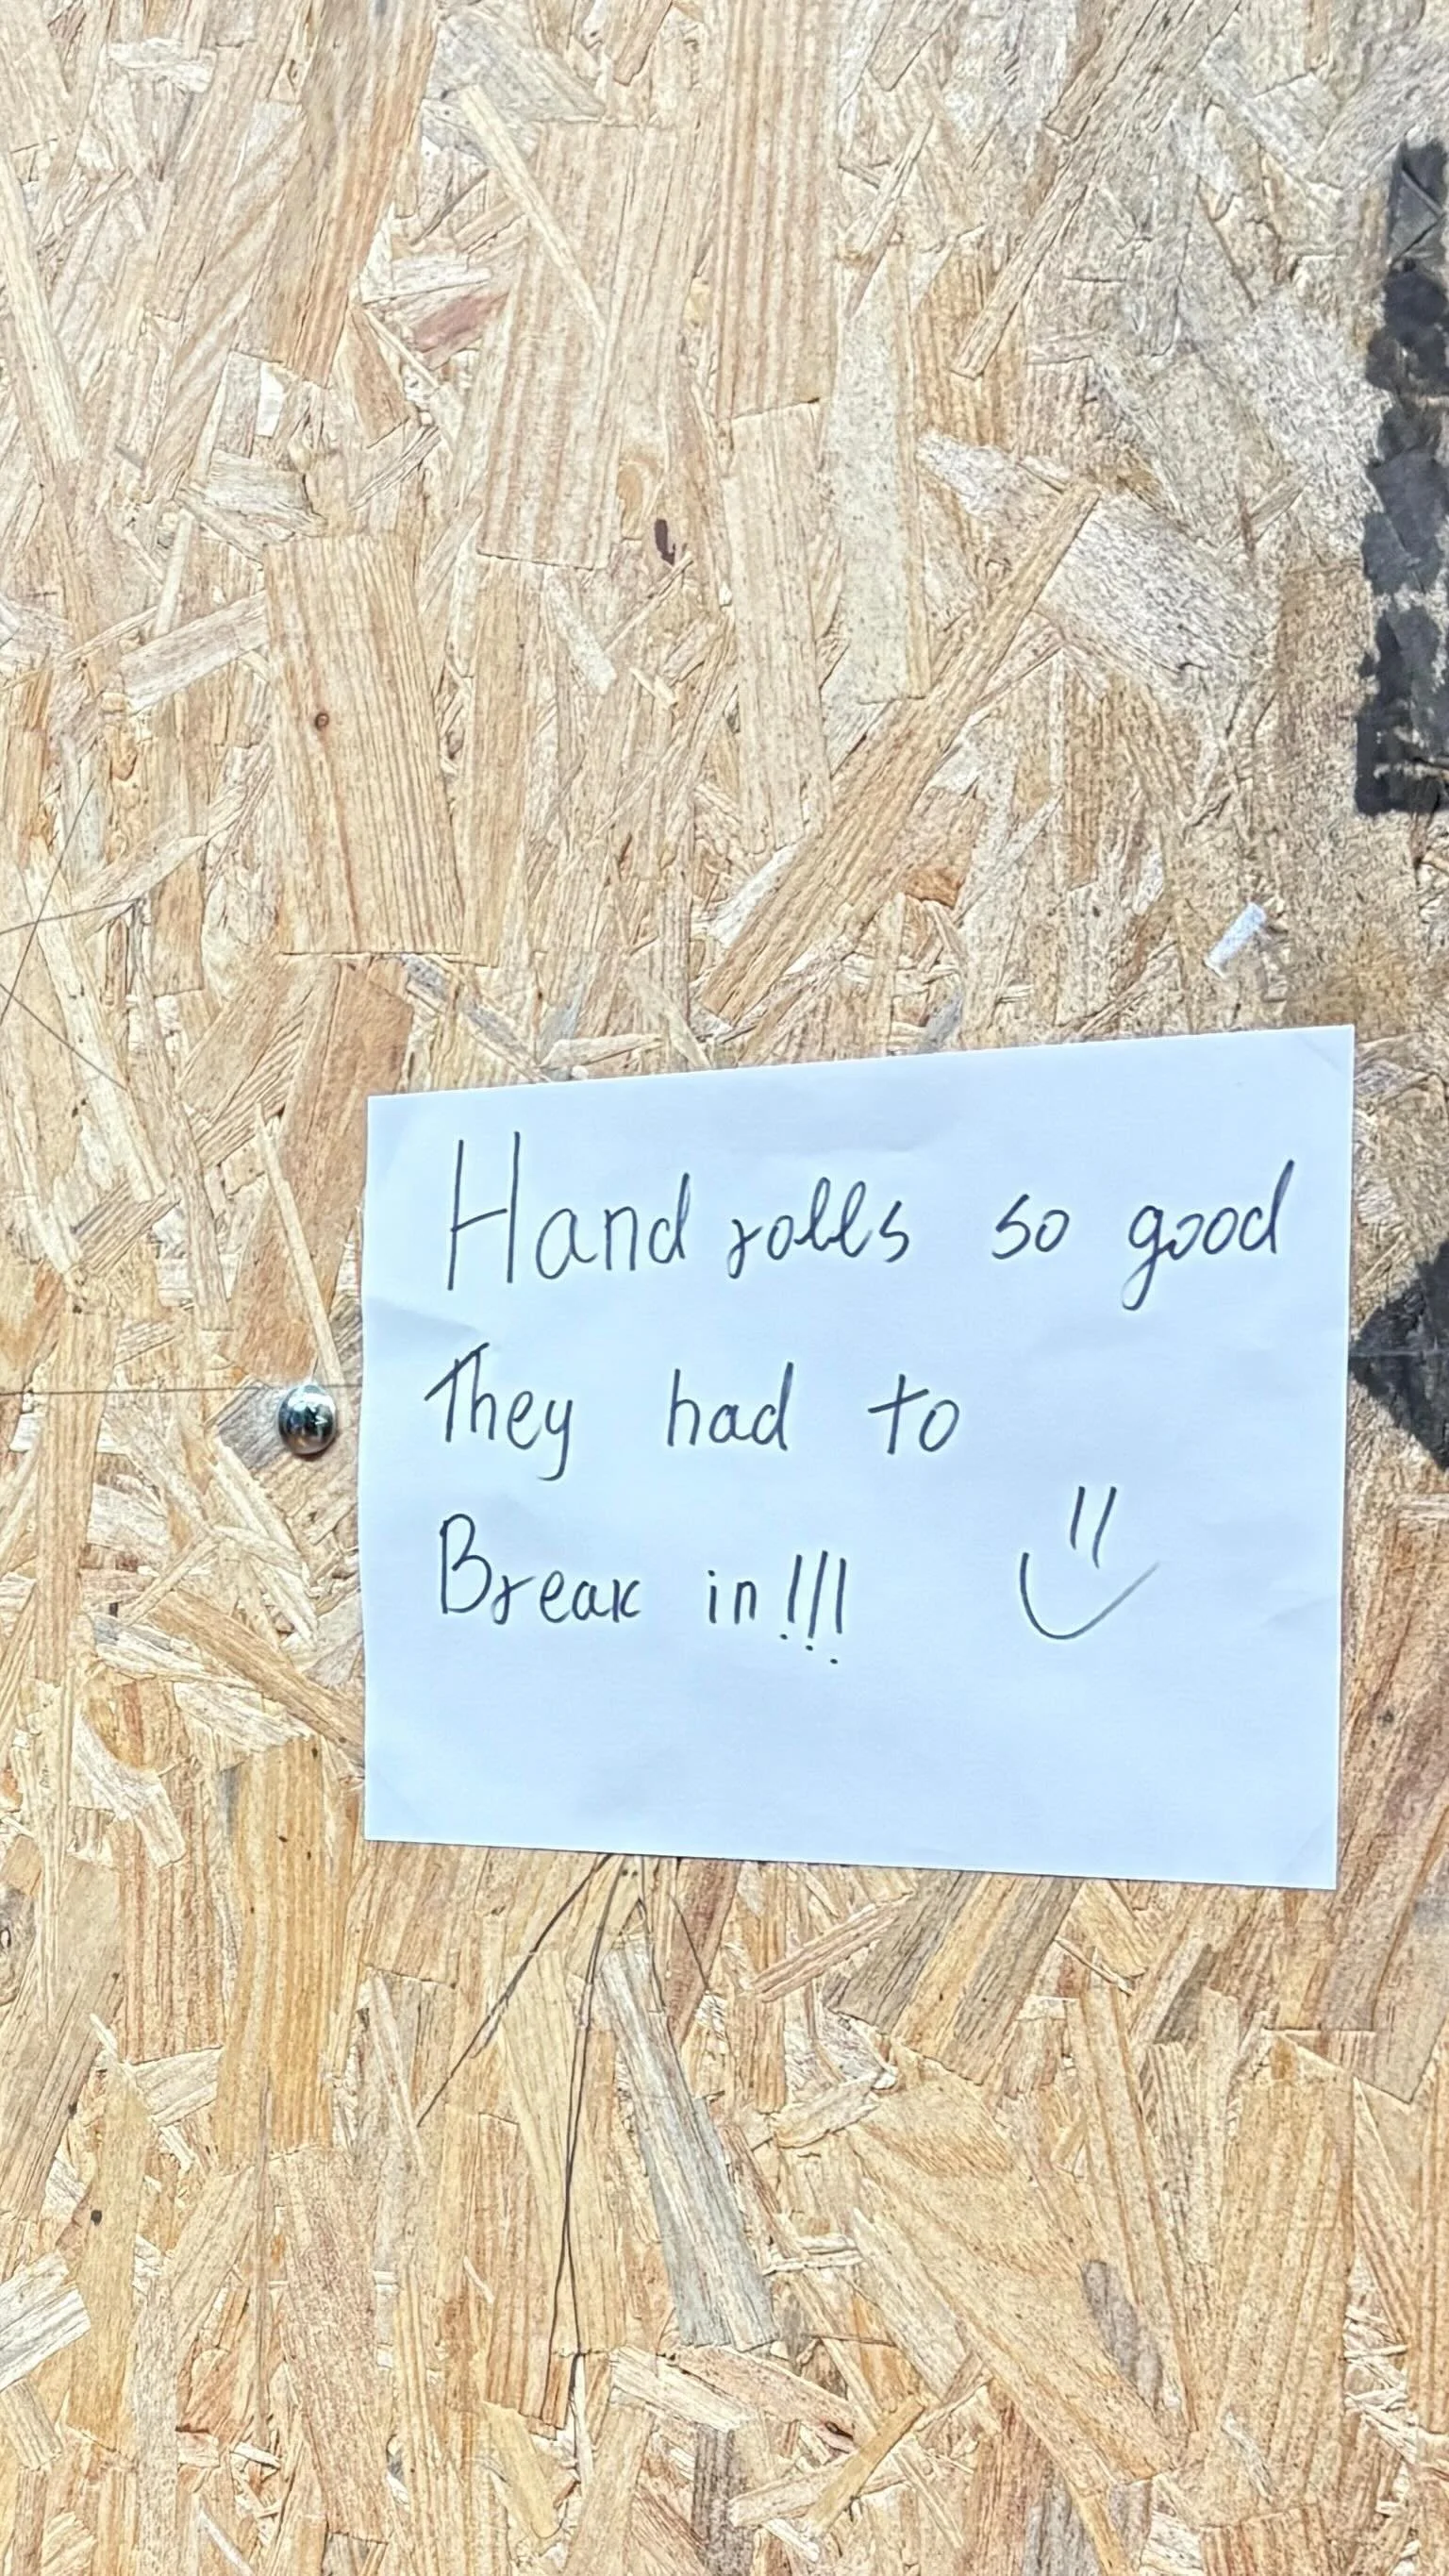 Hand rolls so good
They had to
Break in!!!